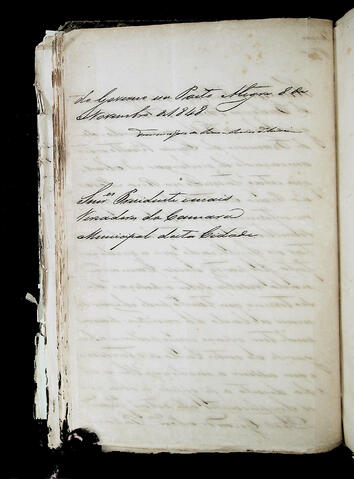 do Governo em Porto Alegre 8 de
Novembro de 1848
Snr.es Presidente e mais
Vereadores da Camara
Municipal desta Cidade